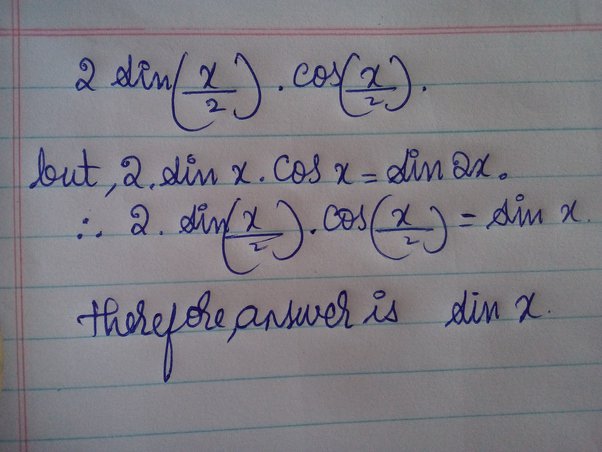 2 sin(x/2) . cos(x/2).
but, 2. sin x . cos x = sin 2x.
∴ 2. sin(x/2) . cos(x/2) = sin x.
therefore, answer is sin x.